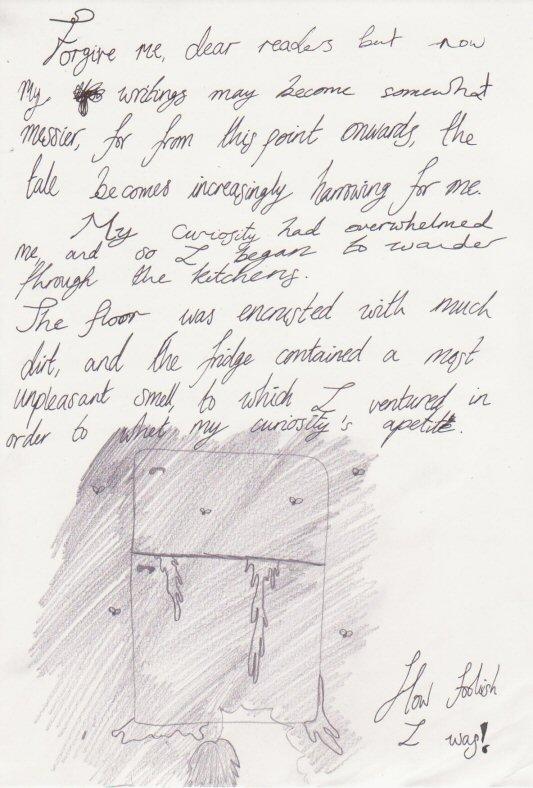 Forgive me, dear readers but now
my writings may become somewhat
messier, for from this point onwards, the
tale becomes increasingly harrowing for me.
My curiosity had overwhelmed
me, and so I began to wander
through the kitchens.
The floor was encrusted with much
dirt, and the fridge contained a most
unpleasant smell, to which I ventured in
order to whet my curiosity's apetite.
How foolish
I was!